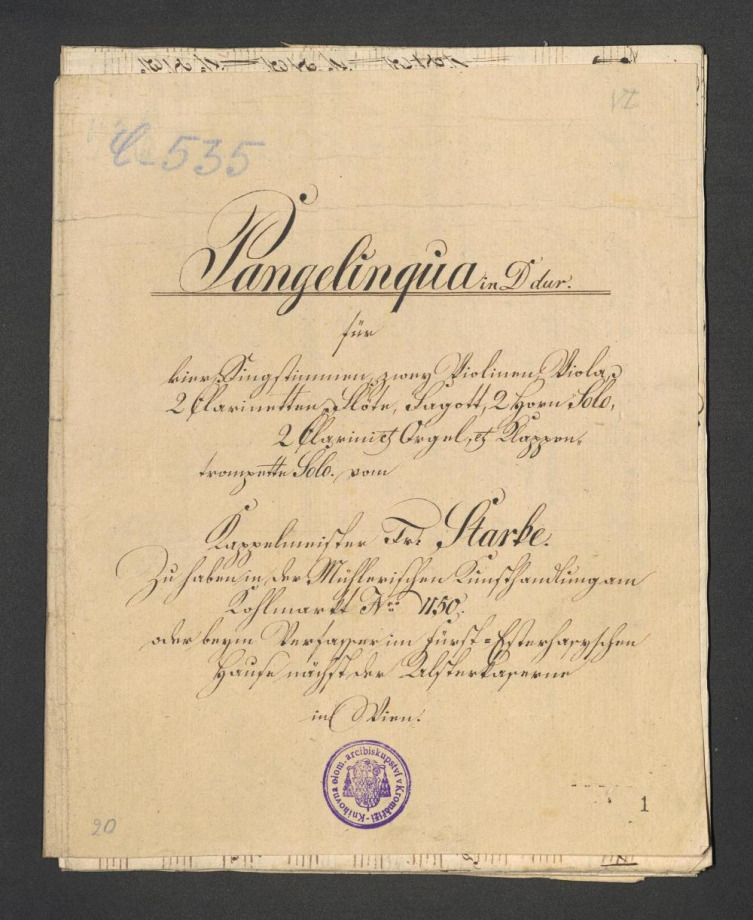 VI
C 535
Pangelinqua in D dur.
für
vier Singstimmen, zwey Violinen Viola,
2 Clarinetten, Flöte, Fagott, 2 Horn Solo,
2 Clarini et Orgel, et Klappen,
trompette Solo. vom
Kappelmeister Fr: Starke.
Zu haben in der Mühlerischen Kunsthandlung am
Kohlmarkt No 1150.
oder beym Verfasser im Fürst=Esterhazyschen
Hause nächst der Alsterkaserne
in Wien.
Knihovna olom. arcibiskupství v Kroměříži
1
20